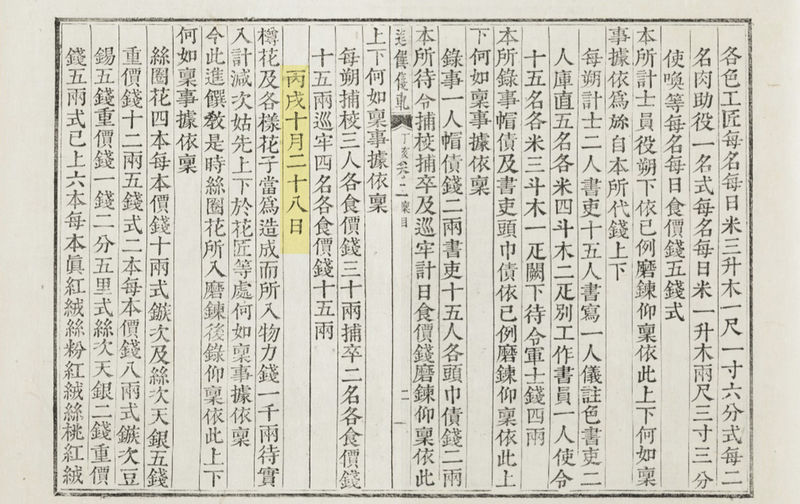 各色工匠每名每日米三升木一尺一寸六分式每二
名肉助役一名式每名每日米一升木兩尺三寸三分
使喚等每名每日食價錢五錢式
本所計士員役朔下依已例磨鍊仰稟依此上下何如稟
事據依爲旀自本所代錢上下
每朔計士二人書吏十五人書寫一人儀註色書吏二
人庫直五名各米四斗木二疋別工作書員一人使令
十五名各米三斗木一疋闕下待令軍士錢四兩
本所錄事帽債及書吏頭巾債依已例磨鍊仰稟依此上
下何如稟事據依稟
錄事一人帽債錢二兩書吏十五人各頭巾債錢二兩
本所待令捕校捕卒及巡牢計日食價錢磨鍊仰稟依此
進饌儀軌 丁亥 卷二 稟目 二
上下何如稟事據依稟
每朔捕校三人各食價錢三十兩捕卒二名各食價錢
十五兩巡牢四名各食價錢十五兩
丙戌十月二十八日
樽花及各樣花子當爲造成而所入物力錢一千兩待實
入計減次姑先上下於花匠等處何如稟事據依稟
今此進饌敎是時絲圈花所入磨鍊後錄仰稟依此上下
何如稟事據依稟
絲圈花四本每本價錢十兩式鏃次及絲次天銀五錢
重價錢十二兩五錢式二本每本價錢八兩式鏃次豆
錫五錢重價錢一錢二分五里式絲次天銀二錢重價
錢五兩式已上六本每本眞紅絨絲粉紅絨絲桃紅絨